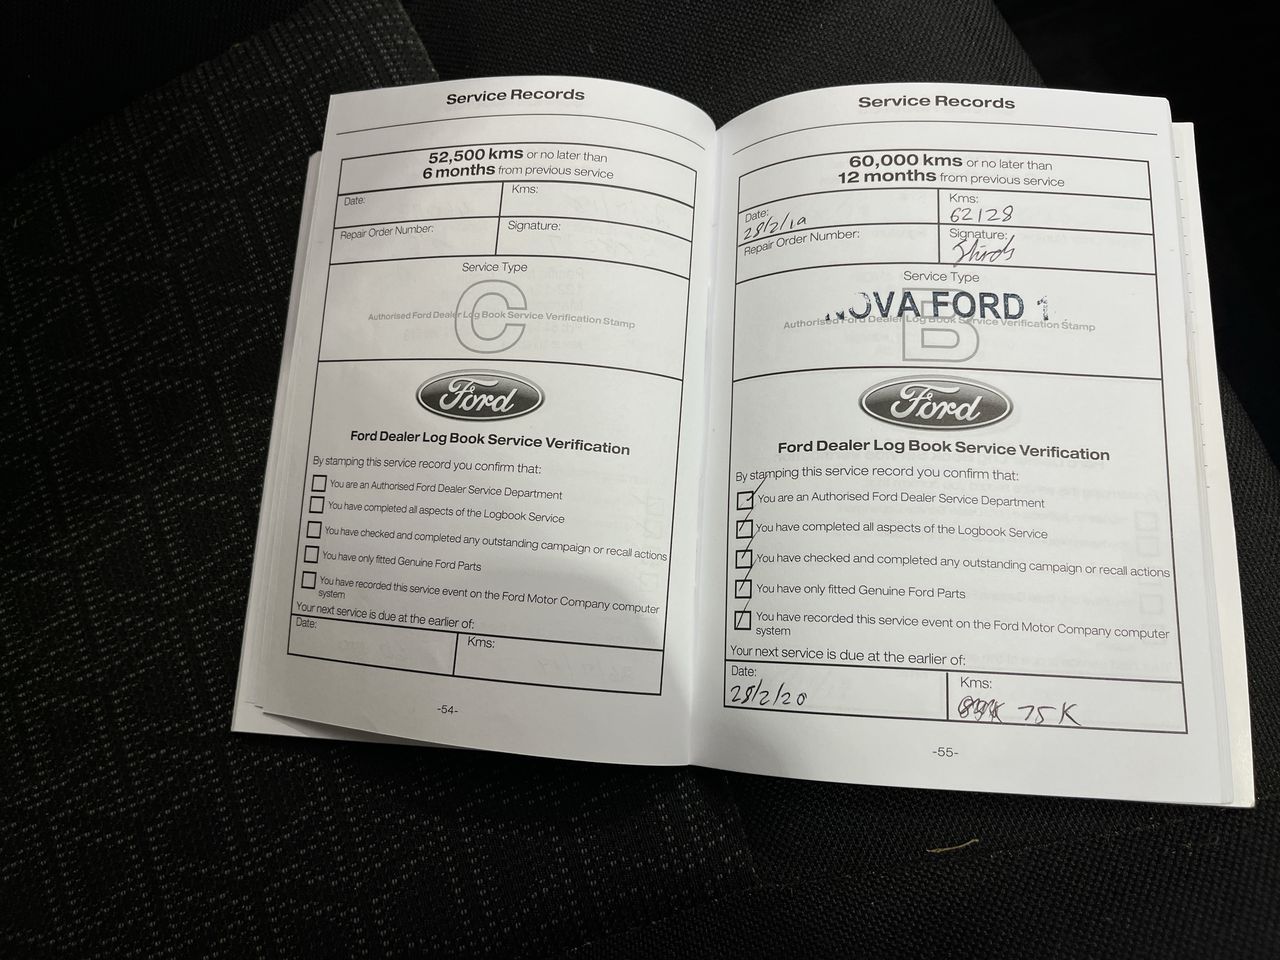 Service Records
52,500 kms or no later than
6 months from previous service
Date:
Kms:
Repair Order Number:
Signature:
Service Type
C
Authorised Ford Dealer Log Book Service Verification Stamp
Ford
Ford Dealer Log Book Service Verification
By stamping this service record you confirm that:
You are an Authorised Ford Dealer Service Department
You have completed all aspects of the Logbook Service
You have checked and completed any outstanding campaign or recall actions
You have only fitted Genuine Ford Parts
You have recorded this service event on the Ford Motor Company computer
system
Your next service is due at the earlier of:
Date:
Kms:
-54-
Service Records
60,000 kms or no later than
12 months from previous service
Date:
28/2/19
Kms:
62128
Repair Order Number:
Signature:
Service Type
NOVA FORD 1
B
Authorised Ford Dealer Log Book Service Verification Stamp
Ford
Ford Dealer Log Book Service Verification
By stamping this service record you confirm that:
You are an Authorised Ford Dealer Service Department
You have completed all aspects of the Logbook Service
You have checked and completed any outstanding campaign or recall actions
You have only fitted Genuine Ford Parts
You have recorded this service event on the Ford Motor Company computer
system
Your next service is due at the earlier of:
Date:
28/2/20
Kms:
75K
-55-